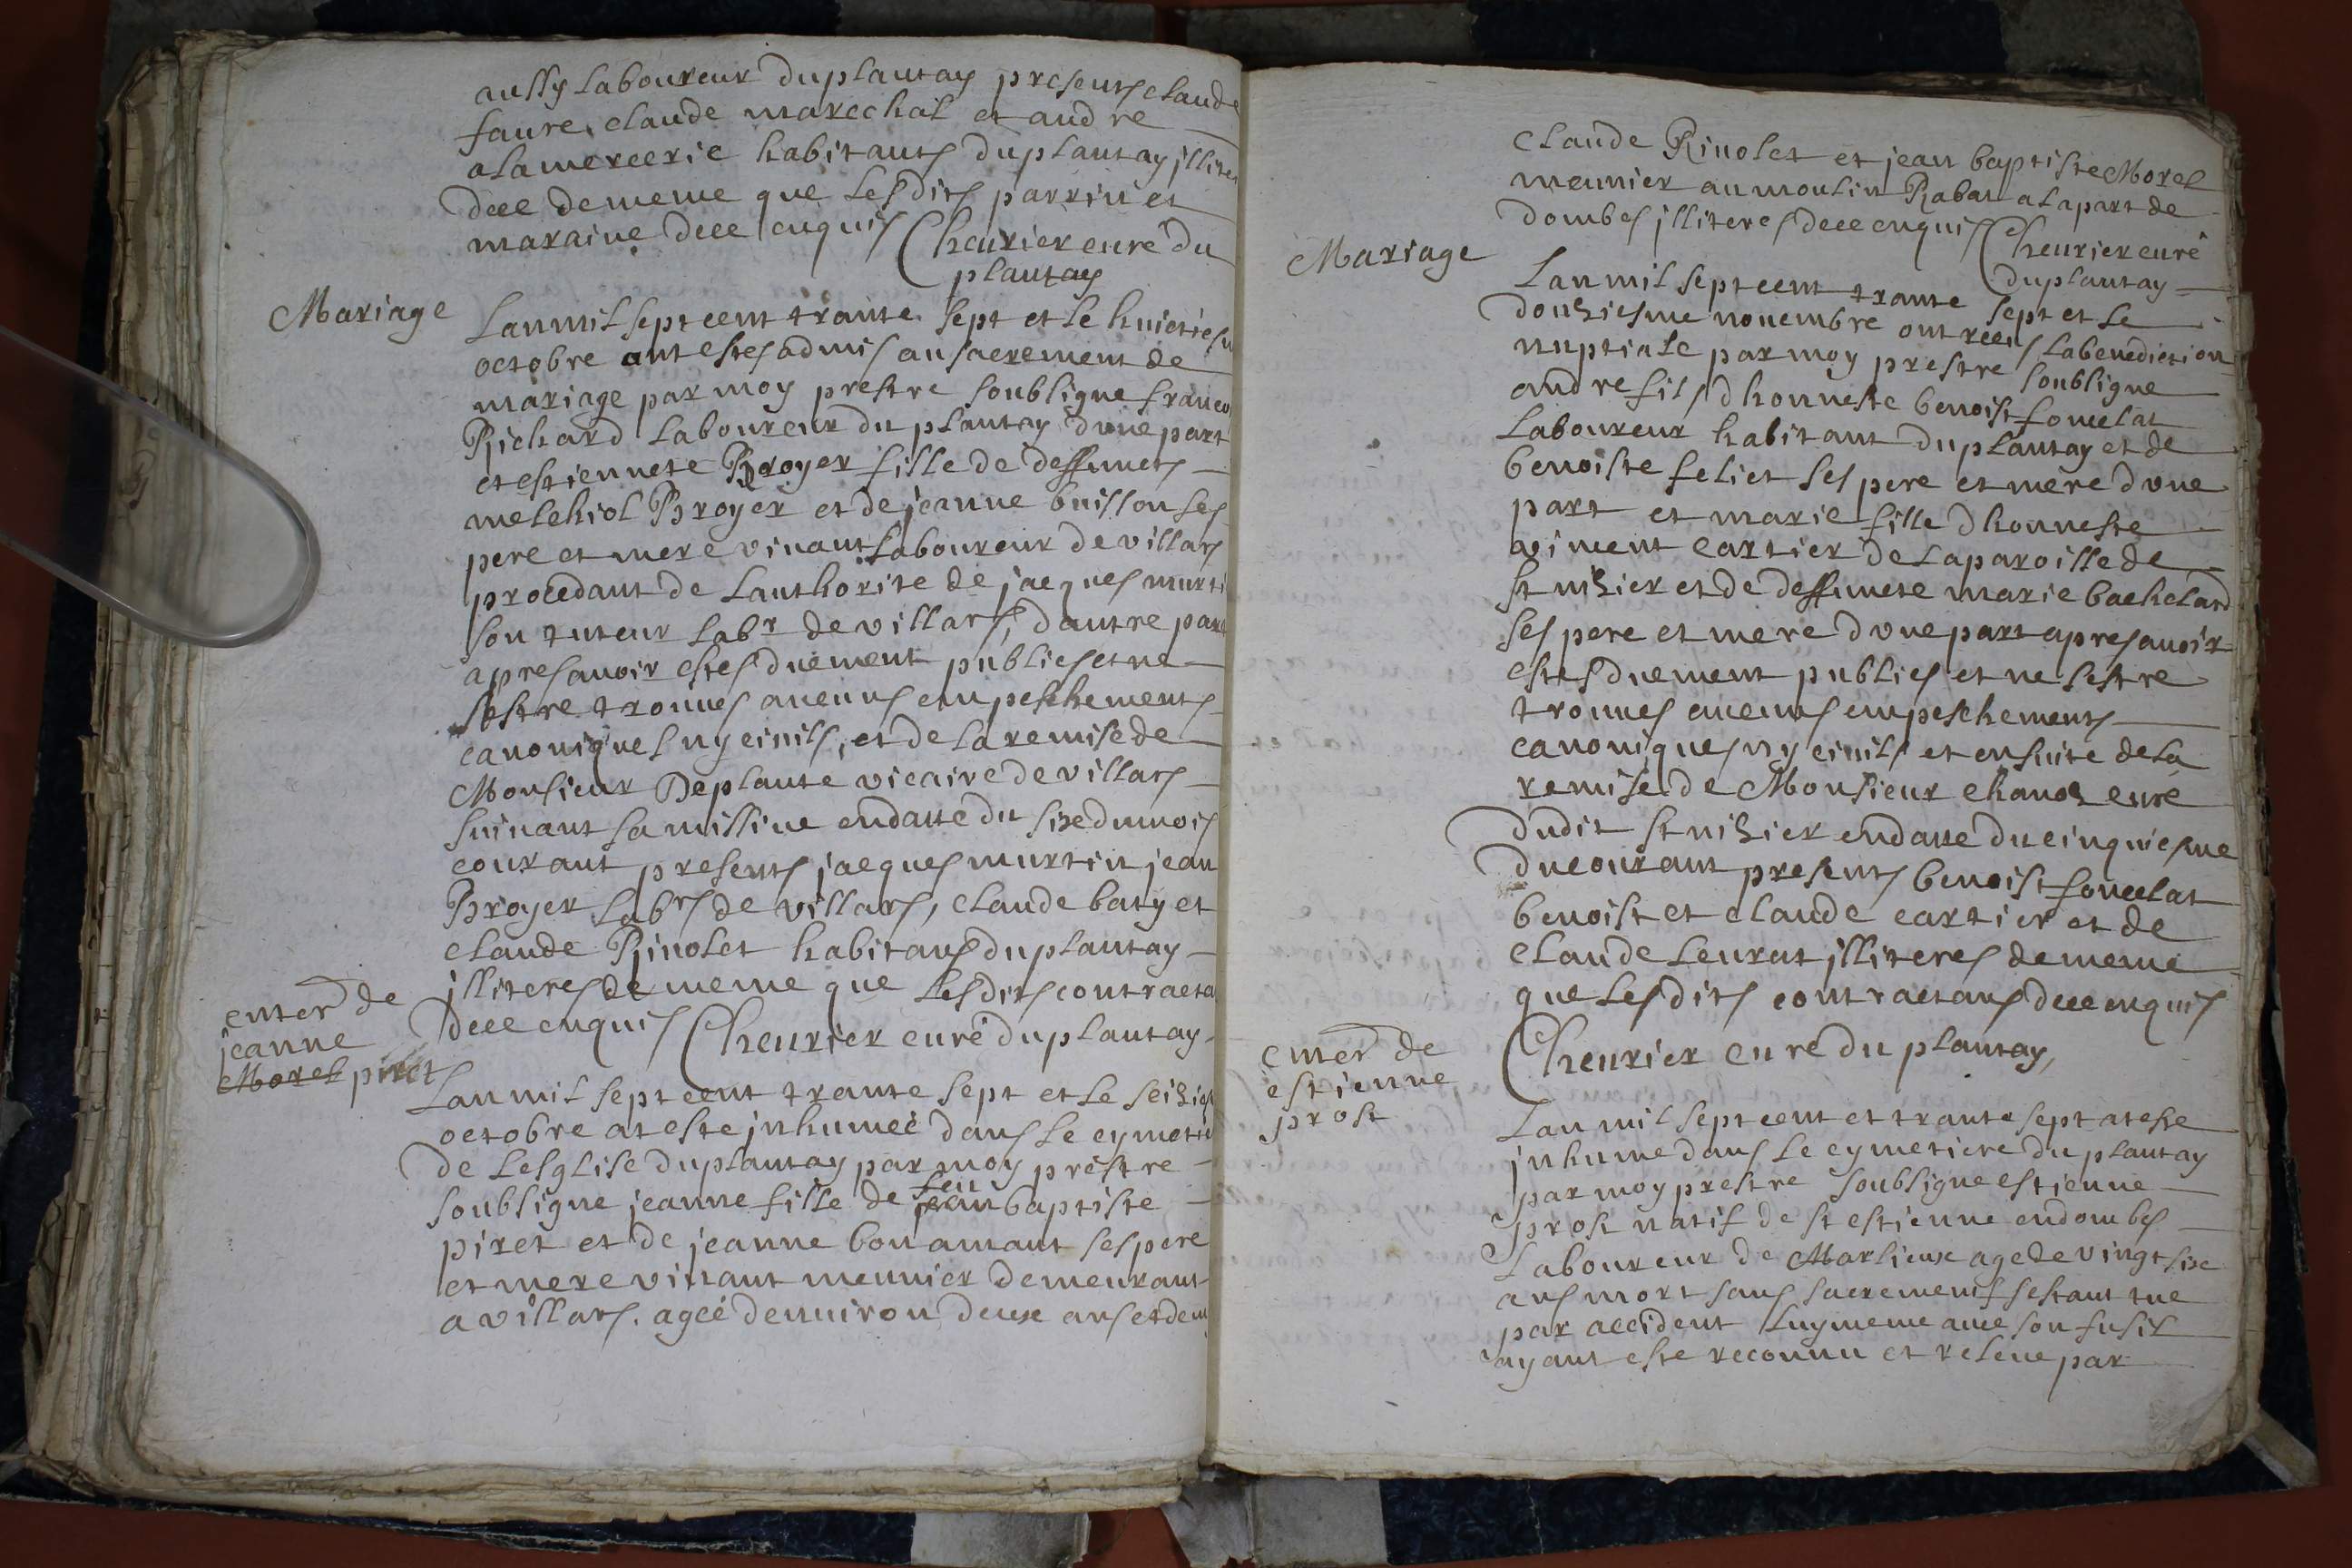 aussy laboureur du plantay presents claude
faure, claude marechal et andre
alamercerie habitants du plantay illiter
dece de meme que lesdits parrin et
maraine dece enquis Cheurier curé du
plantay
Mariage
Lan mil sept cent trante sept et le huictiesm
octobre ont estes admis au sacrement de
mariage par moy prestre soubsigne francoi
Richard laboureur du plantay dune part
et estiennete Broyer fille de deffuncts
melchiol Broyer et de jeanne buisson ses
pere et mere vivant laboureur de villars
procedant de lauthorite de jacques murti
son tuteur labr de villars, dautre part
apres auoir estes duement publies et ne
sestre trouues aucuns empeschements
canoniques ny ciuils, et de la remise de
Monsieur Deplante vicaire de villars
suiuant sa missiue en datte du sixe du mois
courant presents jacques murtin jean
Broyer labrs de villars, claude baty et
claude Rinolet habitans du plantay
illiteres de meme que lesdits contracta
dece enquis Cheurier curé du plantay
enterr de
jeanne
Morel piret
Lan mil sept cent trante sept et le seizies
octobre at este inhumeé dans le cymetie
de Lesglise du plantay par moy prestre
soubsigne jeanne fille de feu jean baptiste
piret et de jeanne bonamant ses pere
et mere viuant meunier demeurant
a villars. ageé denuiron deux ans et demi
claude Rinolet et jean baptiste Morel
meunier au moulin Rabat a la part de
dombes illiteres dece enquis Cheurier curé
du plantay
Mariage
Lan mil sept cent trante sept et le
douziesme nouembre ont recus la benediction
nuptiale par moy prestre soubsigne
andre fils dhonneste benoist foncelat
laboureur habitant du plantay et de
benoiste feliet ses pere et mere dune
part et marie fille dhonneste
viment cartier de la paroisse de
st nizier et de deffuncte marie bachelard
ses pere et mere dune part apres auoir
estes duement publies et ne sestre
trouues aucuns empeschements
canoniques ny ciuils et ensuite de la
remise de Monsieur chanoz curé
dudit st nizier en datte du cinquiesme
du courant presents benoist foncelat
benoist et claude cartier et de
claude leurat illiteres de meme
que lesdits contractans dece enquis
Cheurier curé du plantay,
enterr de
estienne
prost
Lan mil sept cent et trante sept at este
inhume dans le cymetiere du plantay
par moy prestre soubsigne estienne
prost natif de st estienne en dombes
laboureur de Marlieux age de vingt six
ans mort sans sacrements sestant tue
par accident luy meme auec son fusil
ayant este reconnu et releue par